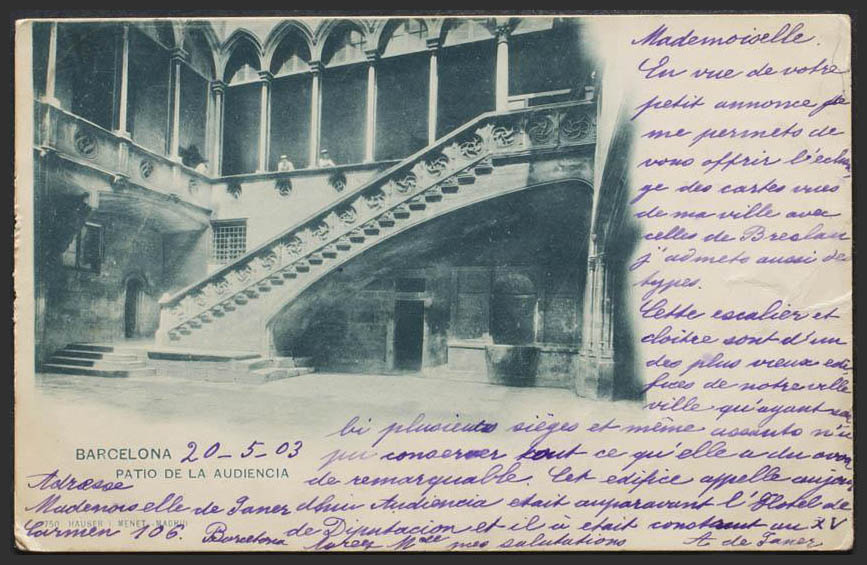 Mademoiselle.
En vue de votre
petit annonce je
me permets de
vous offrir l'echan
ge des cartes vues
de ma ville avec
celles de Breslau
j'admets aussi des
types.
Cette escalier et
cloître sont d'un
des plus vieux edi
fices de notre ville
ville qu'ayant su
bi plusieurs sièges et même assauts n'a
pu conserver tout ce qu'elle a du avoir
de remarquable. Cet edifice appelle aujour
d'hui Audiencia etait auparavant l'Hotel de
de Diputacion et il à etait construit au XV
Mlle mes salutations A de Janer
BARCELONA 20-5-03
PATIO DE LA AUDIENCIA
Adresse
Mademoiselle de Janer
750 HAUSER Y MENET.-MADRID
Carmen 106. Barcelona